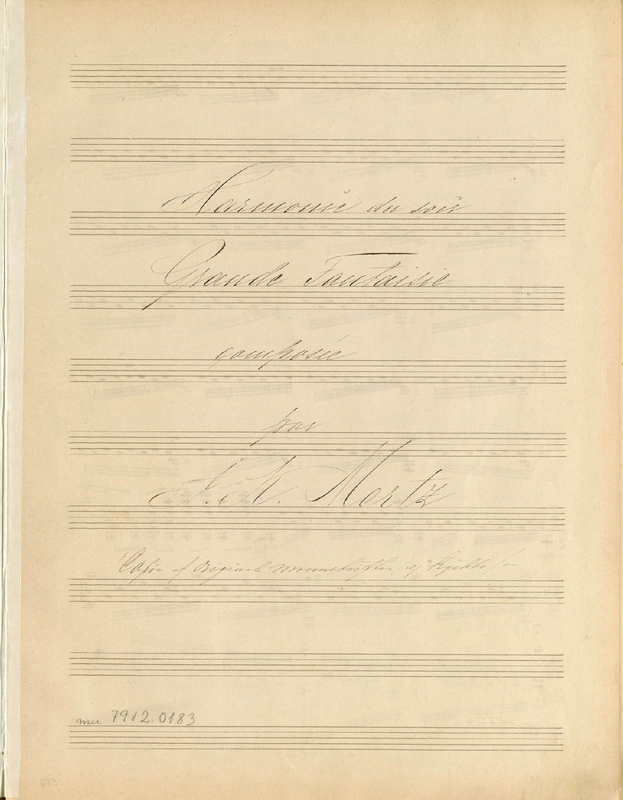 Harmonie du soir
Grande Fantaisie
composée
par
J. K. Mertz
Copie af Original
mu 7912.0183